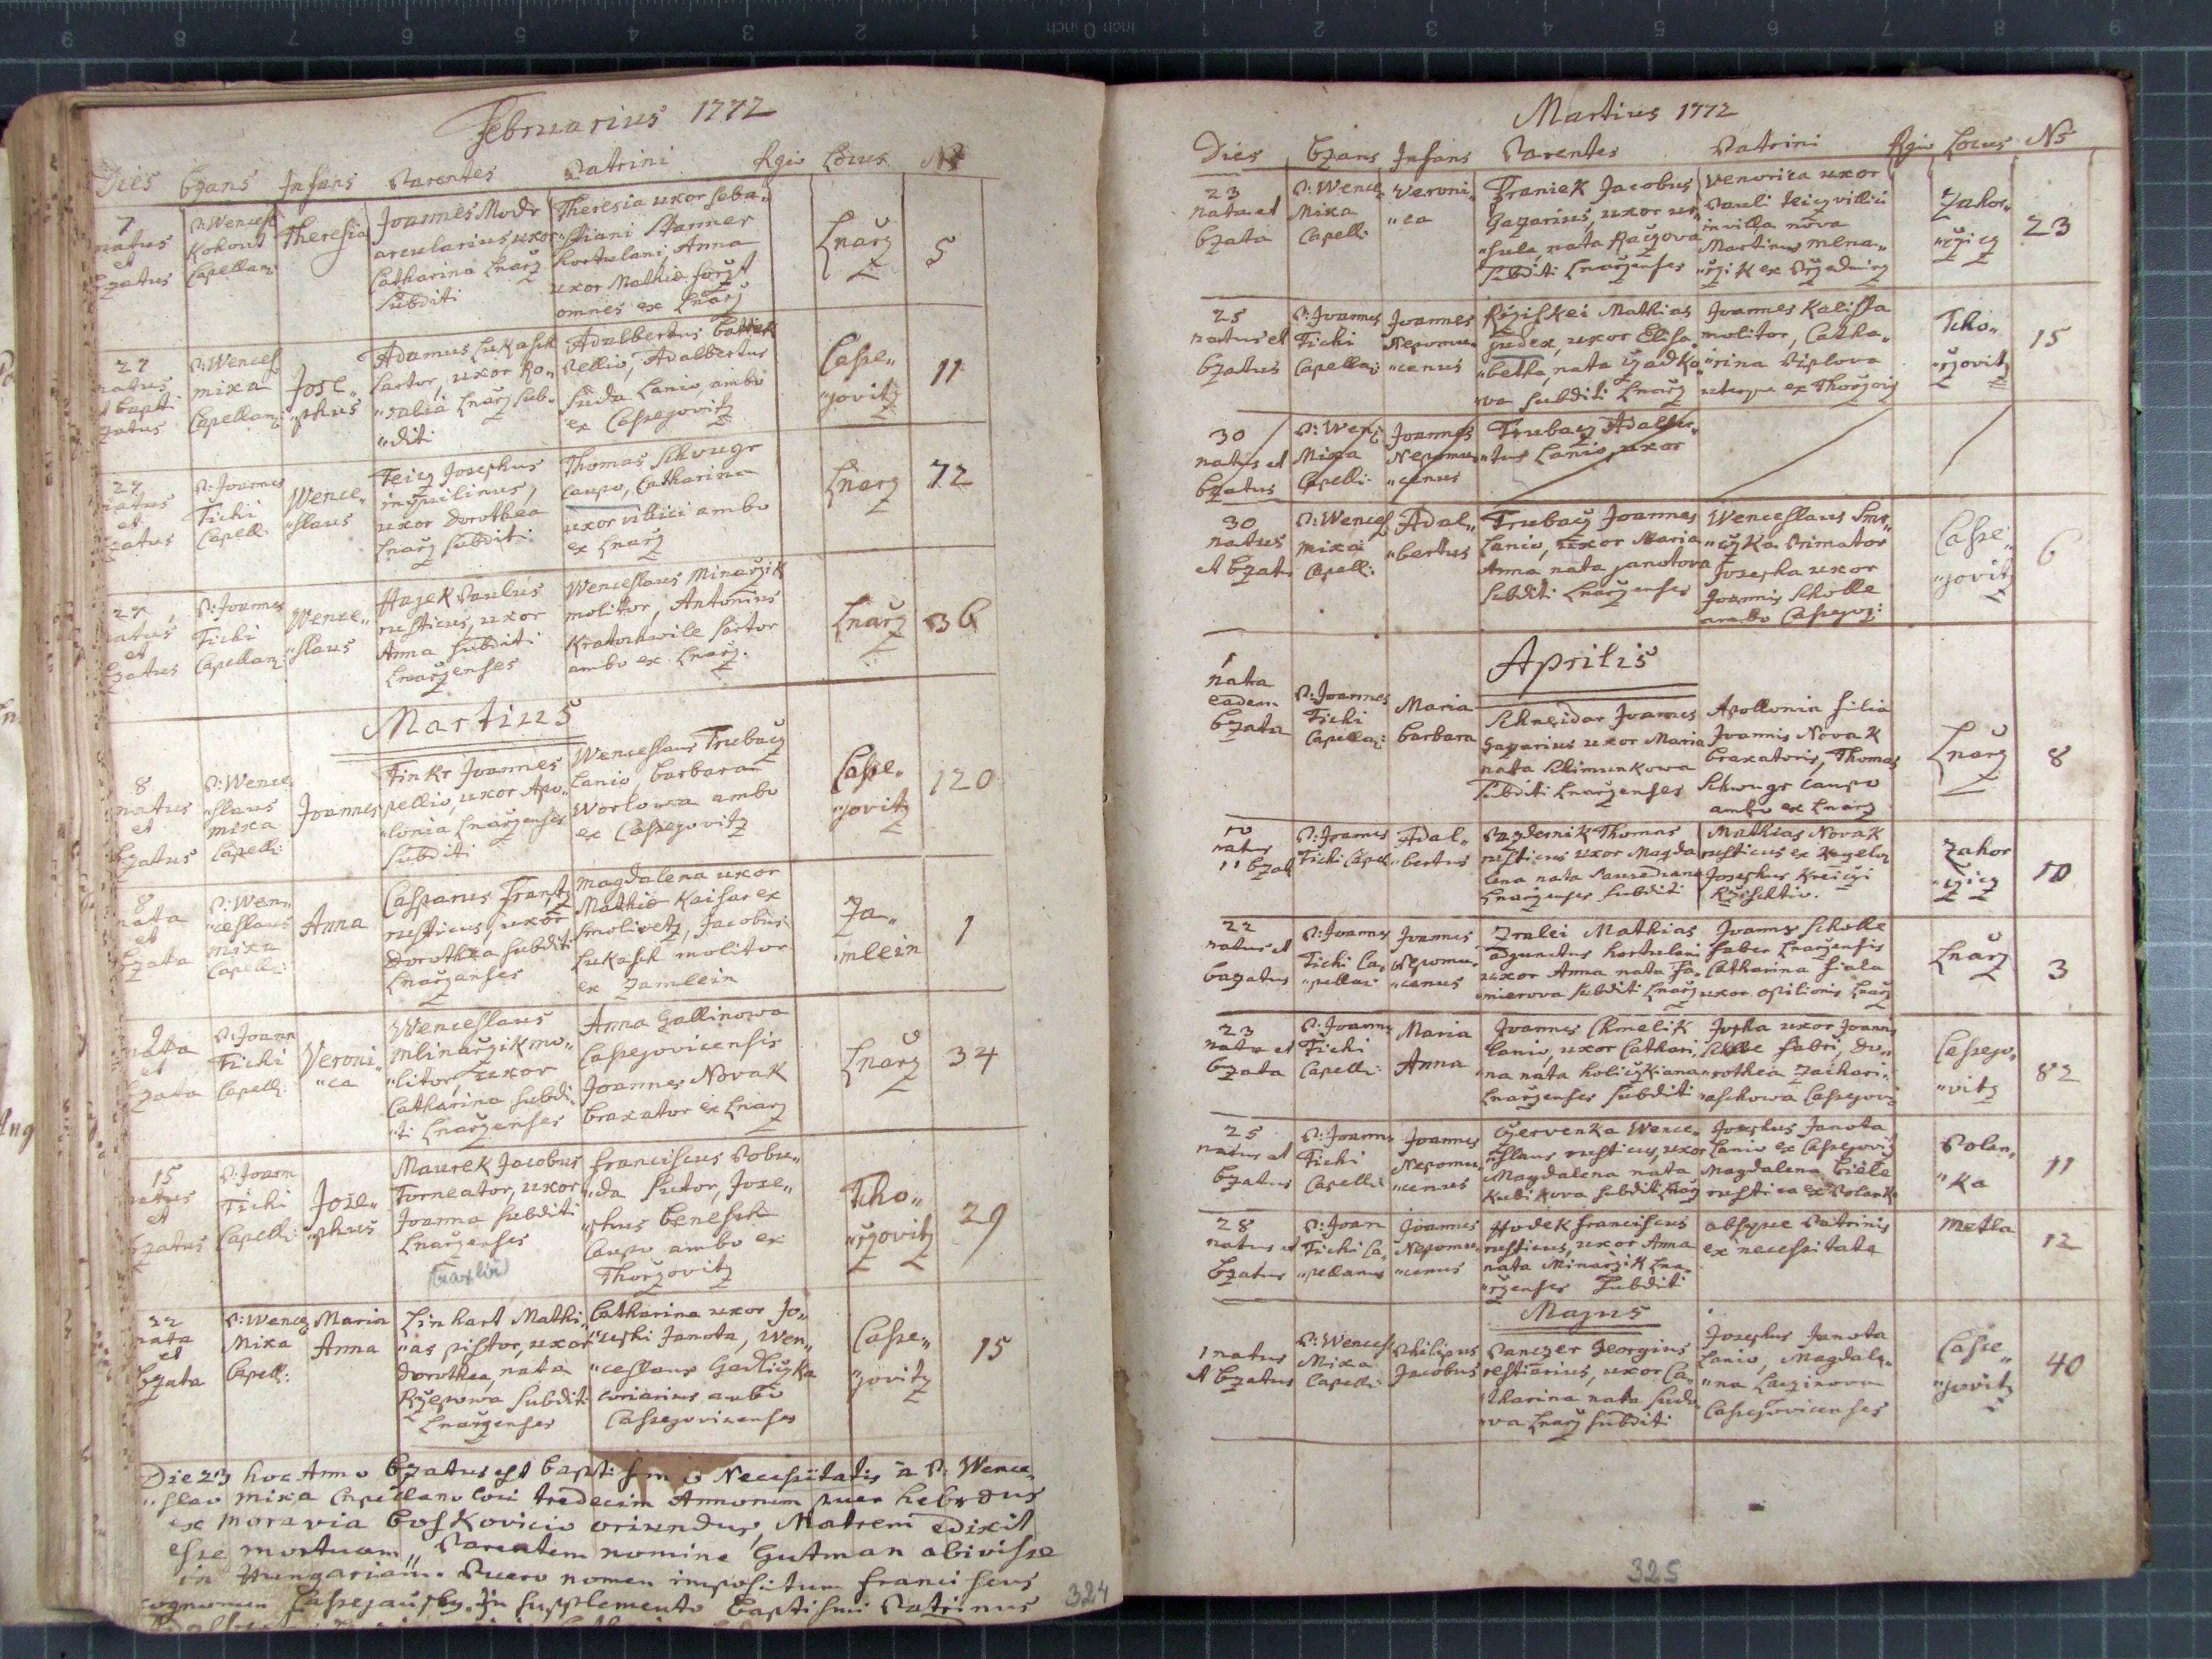 Februarius 1772
Dies Bzans Infans Parentes Patrini Rgio Locus Ns
7 natus et bzatus
P: Wencesl Kohout Capellan:
Theresia
Joannes Modr
arcularius uxor
Catharina Lnarz
subditi
Theresia uxor Seba„
„stiani Stanner
hortulani, Anna
uxor Mathiæ
omnes ex Lnarz
Lnarz
5
27
natus
et bapti
zatus
P: Wencesl
mixa
Capellan:
Jose„
„phus
Adamus Lukasch
Sartor, uxor Ro„
„salia Lnarz sub„
„diti
Adalbertus
Pellio, Adalbertus
Suda Lanio, ambo
ex Cassejovitz
Casse„
„jovitz
11
27
natus
et
bzatus
P: Joannes
Tichi
Capell:
Wence„
„slaus
Teicz Josephus
inquilinus,
uxor Dorothea
Lnarz subditi
Thomas Schwugr
caupo, Catharina
uxor villici ambo
ex Lnarz
Lnarz
72
natus
et
bzatus
P: Joannes
Tichi
Capellan:
Wence„
„slaus
Hajek Paulus
rusticus, uxor
Anna subditi
Lnarzenses
Wenceslaus Minarzik
molitor, Antonius
Kratochwile Sartor
ambo ex Lnarz.
Lnarz
36
Martius
8
natus
et
bzatus
P: Wence
„slaus
mixa
Capell:
Joannes
Finkr Joannes
pellio, uxor Apo„
„lonia Lnarzenses
subditi
Wenceslaus Trubacz
Lanio, barbara
Worlowa ambo
ex Cassejovitz
Casse„
„jovitz
120
8
nata
et
bzata
P: Wen„
„ceslaus
mixa
Capell:
Anna
Casparus Frantz
rusticus, uxor
Dorothea subditi
Lnarzenses
Magdalena uxor
Mathiæ Kaiser ex
Smolivetz, Jacobus
Lukasch molitor
ex Zamlein
Za„
„mlein
1
9
nata
et
bzata
P: Joann
Tichi
Capell:
Veroni„
„ca
Wenceslaus
Mlinarzik mo„
„litor, uxor
Catharina subdi„
„ti Lnarzenses
Anna Gallinowa
Cassejovicensis
Joannes Novak
braxator ex Lnarz
Lnarz
34
15
natus
et
bzatus
P: Joann
Tichi
Capell:
Jose„
„phus
Maurek Jacobus
Torneator, uxor
Joanna subditi
Lnarzenses
Franciscus Pobu„
„da Sutor, Jose„
„phus Benesch
Caupo ambo ex
Thorzovitz
Tho„
„rzovitz
29
22
nata
et
bzata
P: Wencz
Mixa
Capell:
Maria
Anna
Linhart Mathi„
„as pistor, uxor
Dorothea, nata
Rzepowa subditi
Lnarzenses
Catharina uxor Jo„
„sephi Janota, Wen„
„ceslaus Gedliczka
coriarius ambo
Cassejovicenses
Casse„
„jovitz
15
Die 23 hoc Anno bzatus est baptismo Necessitatis a P: Wence„
„slao mixa Capellano loci tredecim Annorum puer hebræus
ex Moravia Boskovicio oriundus, Matrem edixit
esse mortuam, Parentem nomine Gutman abivisse
in Hungariam. Puero nomen impositum Franciscus
cognomen Cassejausky. In supplemento Baptismi Patrinus
324
Martius 1772
Dies Bzans Infans Parentes Patrini Rgio Locus Ns
23
nata et
bzata
P: Wence
Mixa
Capell:
Veroni„
„ca
Franiek Jacobus
Gazarius, uxor ur„
„sula, nata Raczova
Subditi Lnarzenses
Venorica uxor
Pauli teicz villici
in villa nova
Martinus mena„
„rzik ex Przedmirz
Zahor„
„zicz
23
25
natus et
bzatus
P: Joannes
Tichi
Capellan:
Joannes
Nepomu„
„cenus
Rziskei Mathias
judex, uxor Elisa„
„betha, nata
„va subditi Lnarz
Joannes Kalista
molitor, Catha„
„rina Piplova
uterque ex Thorzovi
Tho„
„rzovitz
15
30
natus et
bzatus
P: Wenc:
Mixa
Capell:
Joannes
Nepomu„
„cenus
Trubacz Adalber„
„tus Lanio, uxor
30
natus
et bzat
P: Wencesl
mixa
Capell:
Adal„
„bertus
Trubacz Joannes
Lanio, uxor Maria
Anna nata janotova
Subditi Lnarzenses
Wenceslaus Smr„
„czka Primator
Josepha uxor
Joannis Scholle
ambo Cassejov:
Casse„
„jovitz
6
Aprilis
1
nata
eadem
bzata
P: Joannes
Tichi
Capellan:
Maria
barbara
Schneider Joannes
Gazarius uxor Maria
nata Schimunkowa
Subditi Lnarzenses
Apollonia filia
Joannis Novak
braxatoris, Thomas
Schwugr caupo
ambo ex Lnarz
Lnarz
8
10
natus
11 bzat
P: Joannes
Tichi Capel
Adal„
„bertus
Pazdernik Thomas
rusticus uxor Magda
lena nata
Lnarzenses subditi
Mathias Novak
rusticus ex
Josephus Kreiczi
Zahor
„zicz
10
22
natus et
bazatus
P: Joannes
Tichi Ca„
„pellan
Joannes
Nepomu„
„cenus
Zralei Mathias
adjunctus hortulani
uxor Anna nata
subditi Lnarz
Joannes Scholle
faber Lnarzensis
Catharina fiala
uxor opilionis Lnarz
Lnarz
3
23
nata et
bzata
P: Joannes
Tichi
Capell:
Maria
Anna
Joannes Chmelik
Lanio, uxor Cathari„
„na nata holiczkiana
Lnarzenses subditi
Jospha uxor Joannis
Scholle fabri, Do„
„rothea Zachari„
„aschowa Cassejovi
Cassejo„
„vitz
82
25
natus et
bzatus
P: Joannes
Tichi
Capell:
Joannes
Nepomu„
„cenus
Czervenka Wence„
„slaus rusticus, uxor
Magdalena nata
Kubikova subditi Lnarz
Josephus Janota
Lanio ex Cassejovitz
Magdalena
rustica ex Polank
Polan„
„ka
11
28
natus et
bzatus
P: Joan
Tichi Ca„
„pellanus
Joannes
Nepomu„
„cenus
Hodek Franciscus
rusticus, uxor Anna
nata Minarzik Lna„
„rzenses Subditi
absque Patrinis
ex necessitate
Metla
12
Majus
1 natus
et bzatus
P: Wencesl
Mixa
Capell:
Philipus
Jacobus
Panczer Georgius
restiarius, uxor Ca„
„tharina nata Sudo„
„va Lnarz subditi
Josephus Janota
Lanio, Magdale„
„na
Cassejovicenses
Casse„
„jovitz
40
325